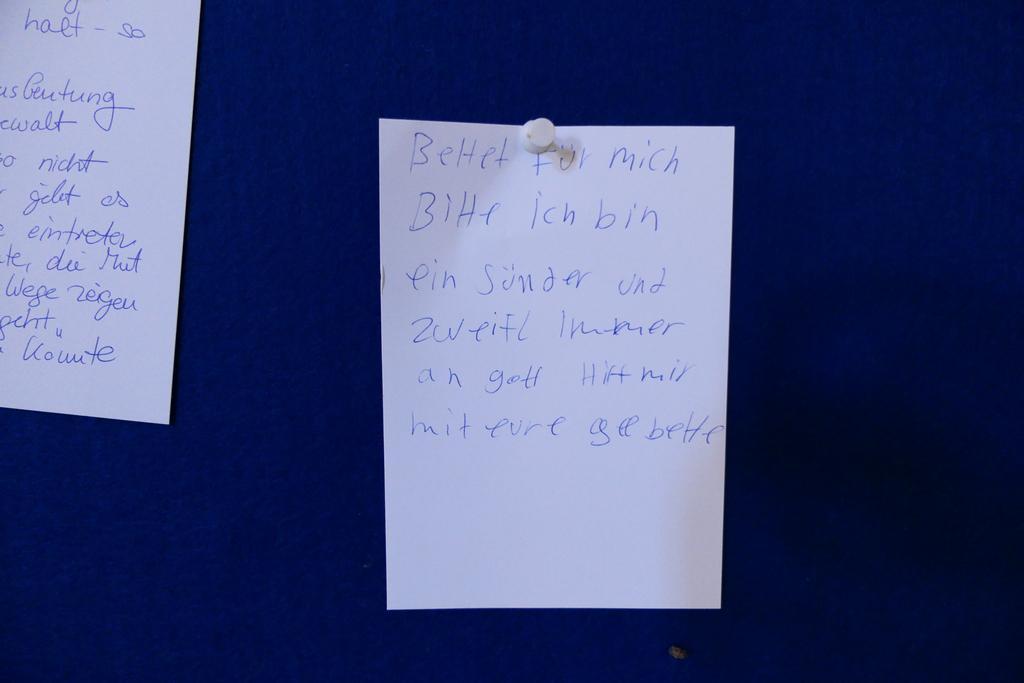 halt - so
usbeutung
ewalt
so nicht
gibt es
e eintreten
te, die Mut
Wege zeigen
geht"
Könnte
Bettet für mich
Bitte ich bin
ein Sünder und
zweifl Immer
an gott Hilf mir
mit eure geebette